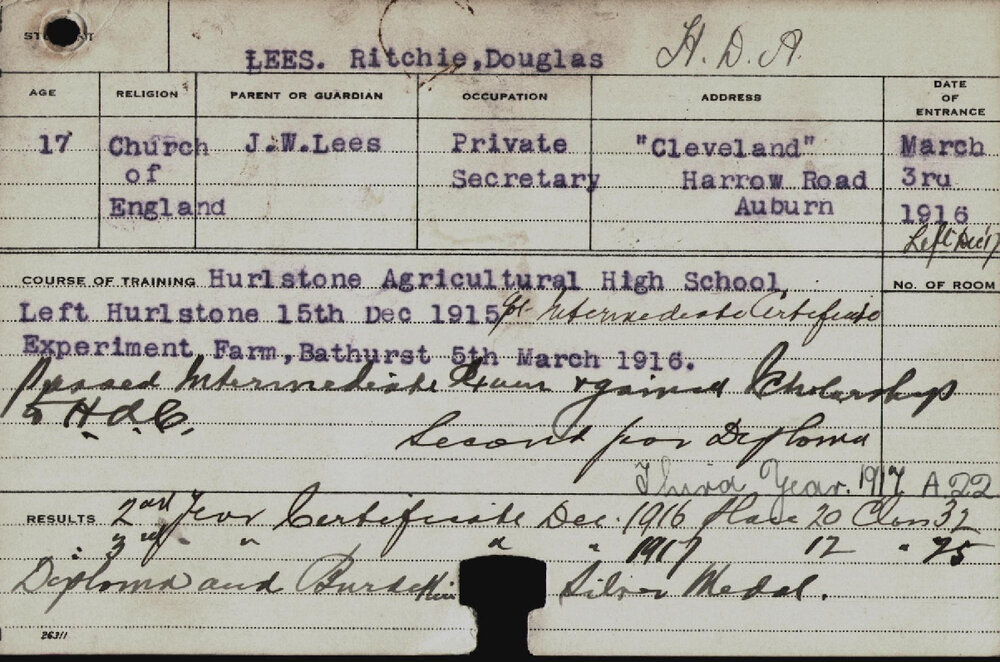 LEES. Ritchie,Douglas H. D. A.
AGE RELIGION PARENT OR GUARDIAN OCCUPATION ADDRESS DATE OF ENTRANCE
17 Church J.W.Lees Private "Cleveland" March
of Secretary Harrow Road 3ru
England Auburn 1916
Left Dec 17
COURSE OF TRAINING Hurlstone Agricultural High School NO. OF ROOM
Left Hurlstone 15th Dec 1915 Intermediate Certificate
Experiment Farm,Bathurst 5th March 1916.
Passed Intermediate Exam & gained Scholarship
to H.A.C.
Second for Diploma
Third Year. 1917 A 22
RESULTS 2nd Year Certificate Dec. 1916 Place 20 Class 32
" 3rd " " " " 1917 12 " 25
Diploma and Silver Medal.
26311